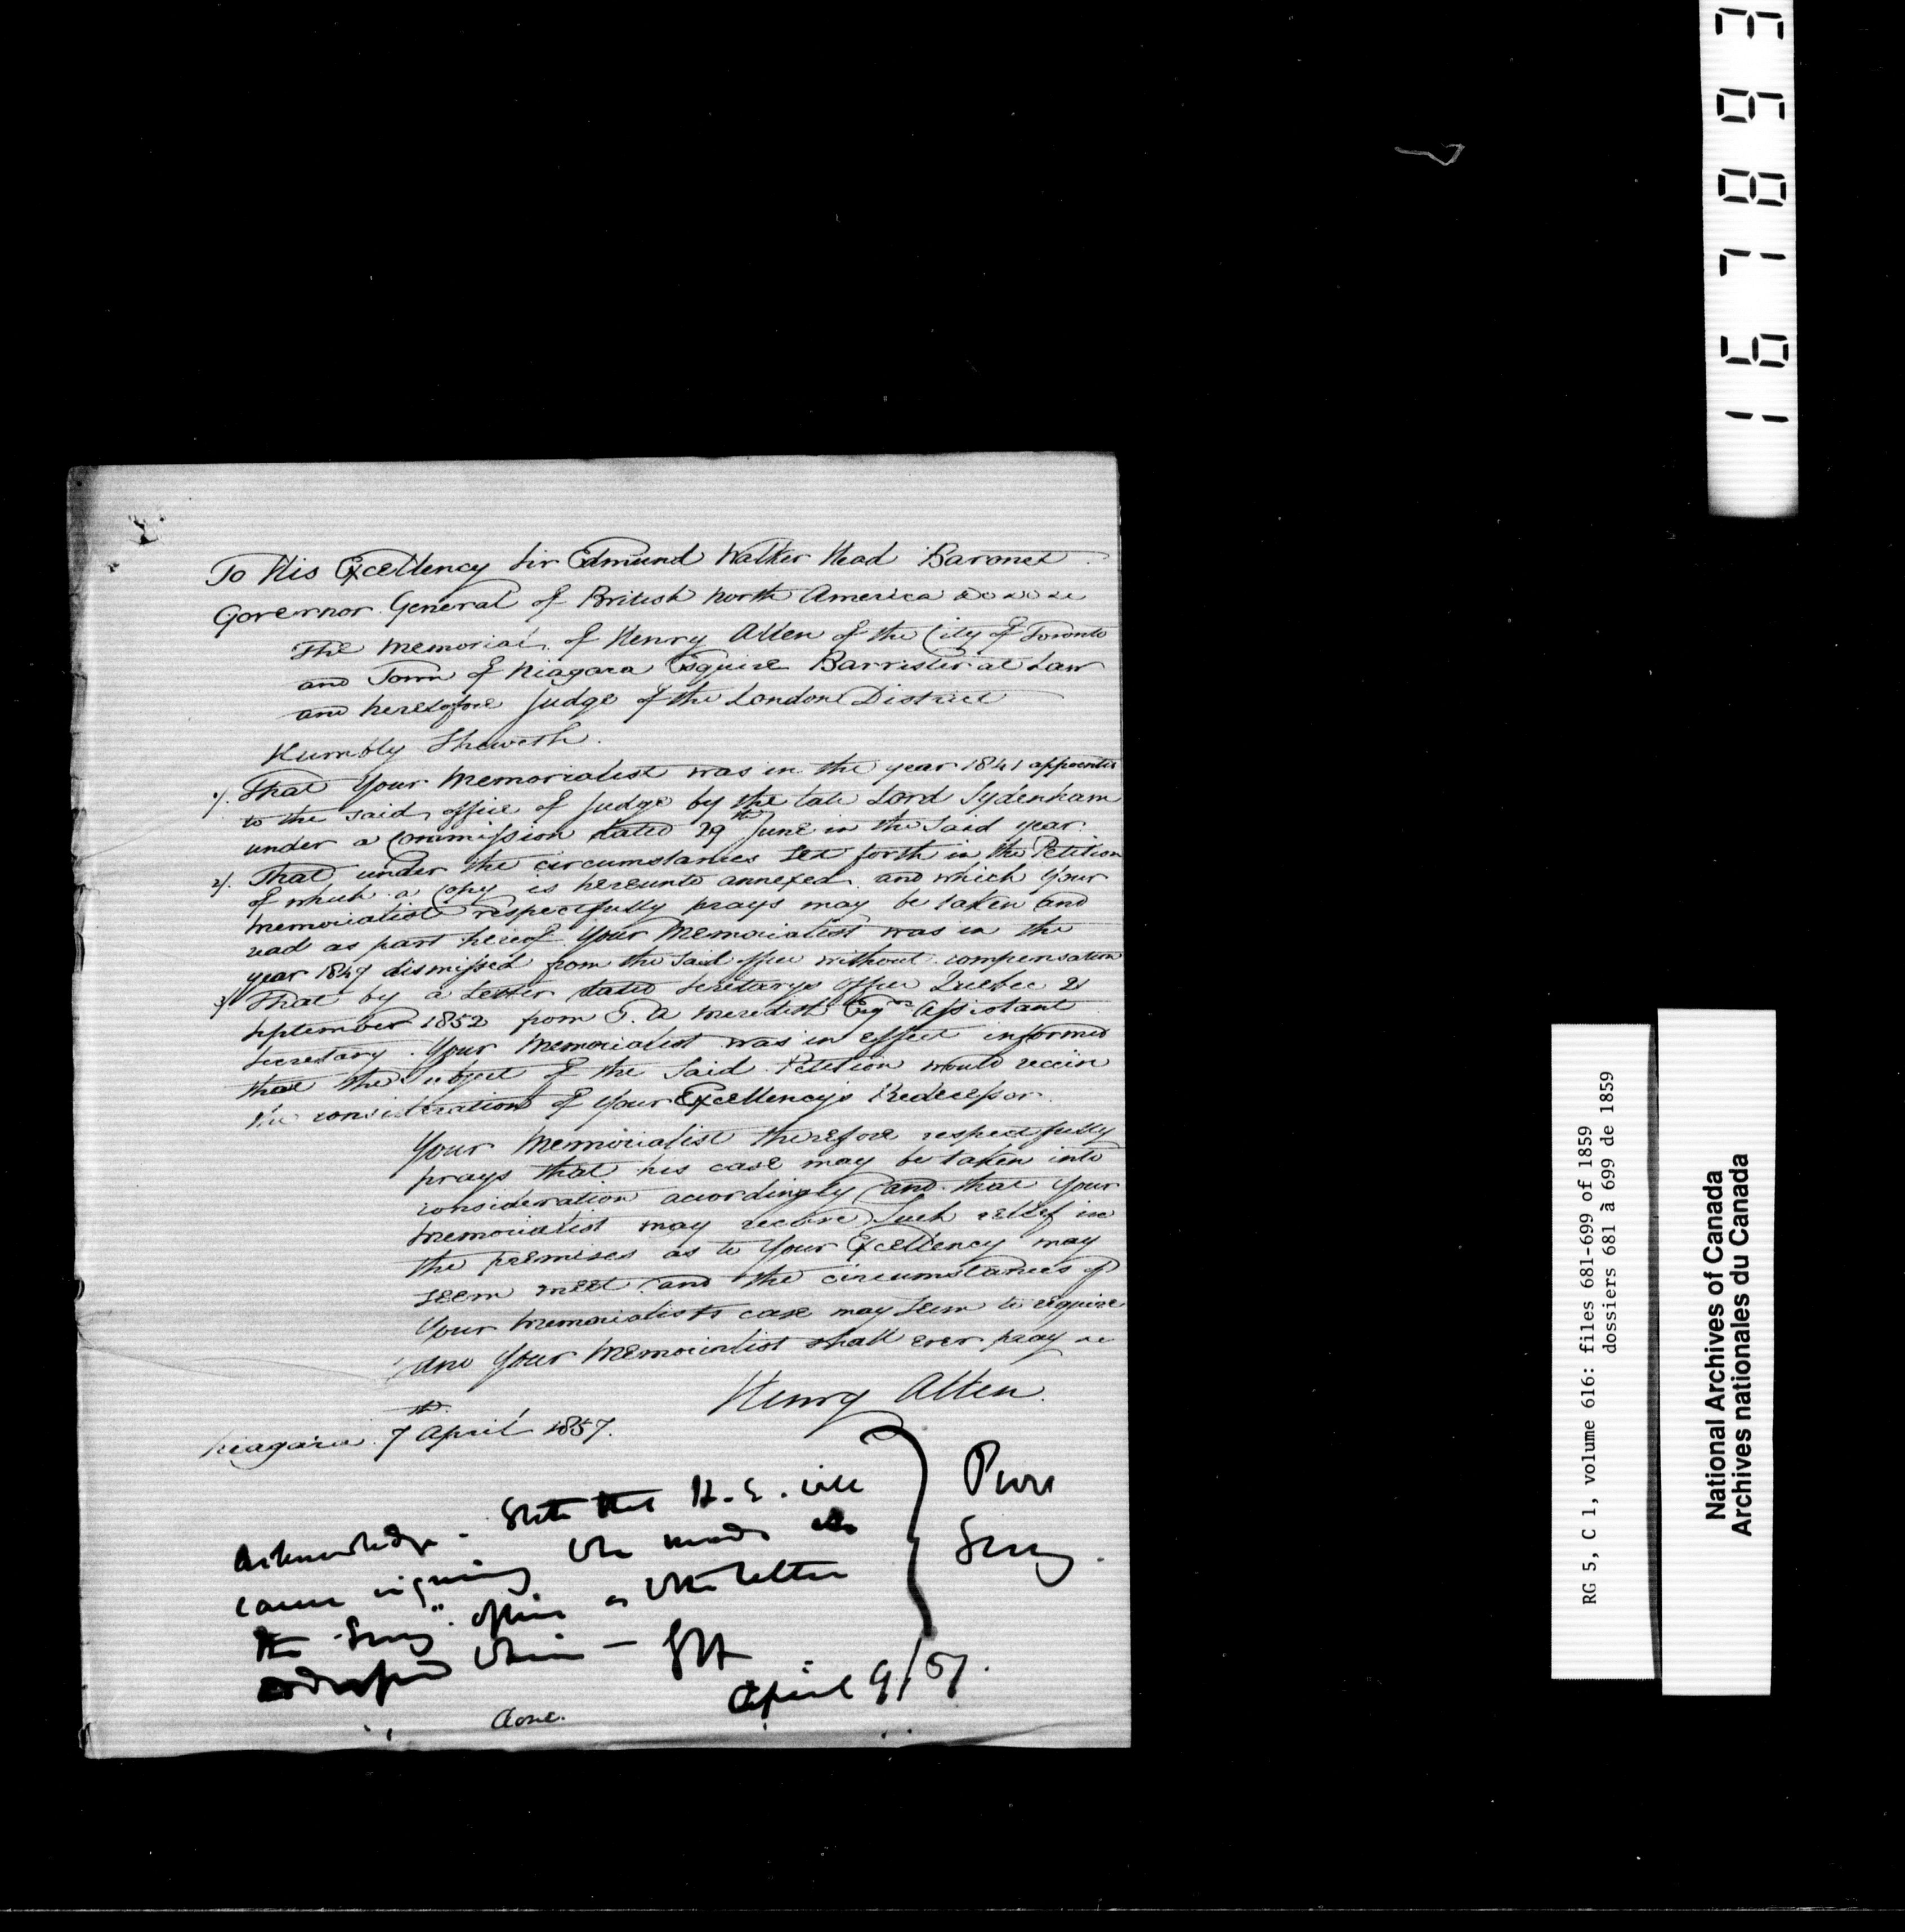 To His Excellency Sir Edmund Walker Head Baronet
Governor General of British North America &c &c &c
The Memorial of Henry Allen of the City of Toronto
and Town of Niagara Esquire Barrister at Law
and heretofore Judge of the London District
Humbly Sheweth.
1/. That Your Memorialist was in the year 1841 appointed
to the said office of Judge by the late Lord Sydenham
under a Commission dated 29th June in the said year.
2/. That under the circumstances set forth in the Petition
of which a Copy is hereunto annexed and which Your
Memorialist respectfully prays may be taken and
read as part hereof Your Memorialist was in the
year 1847 dismissed from the said office without compensation
3/ That by a Letter dated Secretarys Office Quebec 21
September 1852 from E. A Meredith Esqre Assistant
Secretary. Your Memorialist was in effect informed
that the subject of the said Petition would receive
the consideration of Your Excellency's Predecessor.
Your Memorialist therefore respectfully
prays that his case may be taken into
consideration accordingly and that Your
Memorialist may receive such relief in
the premises as to Your Excellency may
seem meet and the circumstances of
Your Memorialists case may seem to require
And Your Memorialist shall ever pray &c
Henry Allen.
Niagara 7th April 1857.
Acknowledge - State that H. E. will
cause inquiry to be made at
the Secy's office as to the letter
addressed to him -
April 9/57.
Done.
Secy.
167893
RG 5, C 1, volume 616: files 681-699 of 1859
dossiers 681 à 699 de 1859
National Archives of Canada
Archives nationales du Canada